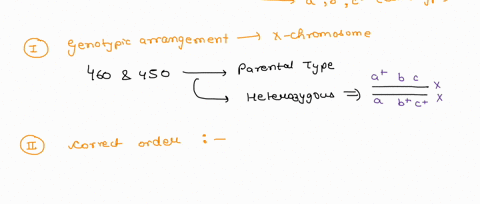 → a, b, c
I Genotypic arrangement → X-chromosome
460 & 450 → Parental Type
→ Heterozygous ⇒ a+ b c X
a b+ c+ X
II. correct order :-